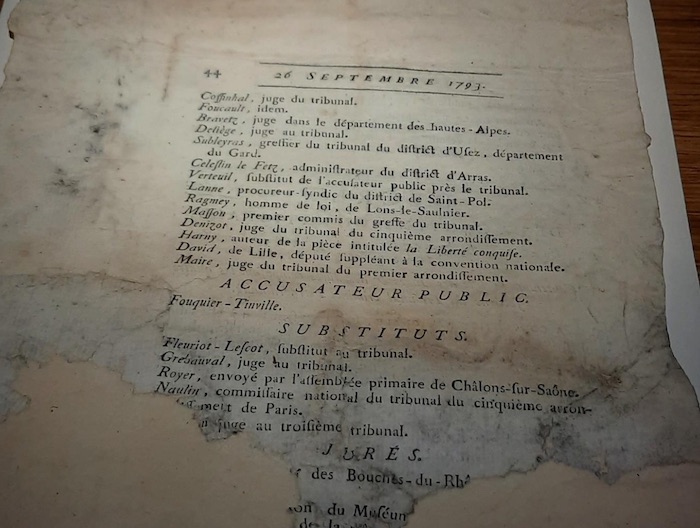 44
26 SEPTEMBRE 1793.
Coffinhal, juge du tribunal.
Foucault, idem.
Bravetz, juge dans le département des hautes-Alpes.
Deliège, juge au tribunal.
Subleyras, greffier du tribunal du diſtrict d'Uſez, département
du Gard.
Celeſtin le Fetz, adminiſtrateur du diſtrict d'Arras.
Verteuil, ſubſtitut de l'accuſateur public près le tribunal.
Lanne, procureur-ſyndic du diſtrict de Saint-Pol.
Ragmey, homme de loi, de Lons-le-Saulnier.
Maſſon, premier commis du greffe du tribunal.
Denizor, juge du tribunal du cinquième arrondiſſement.
Harny, auteur de la pièce intitulée la Liberté conquiſe.
David, de Lille, député ſuppléant à la convention nationale.
Maire, juge du tribunal du premier arrondiſſement.
ACCUSATEUR PUBLIC.
Fouquier-Tinville.
SUBSTITUTS.
Fleuriot-Leſcot, ſubſtitut au tribunal.
Grebauval, juge au tribunal.
Royer, envoyé par l'aſſemblée primaire de Châlons-ſur-Saône.
Naulin, commiſſaire national du tribunal du cinquième arron-
ment de Paris.
juge au troiſième tribunal.
JURÉS.
des Bouches-du-Rh
du Muſéum
de la